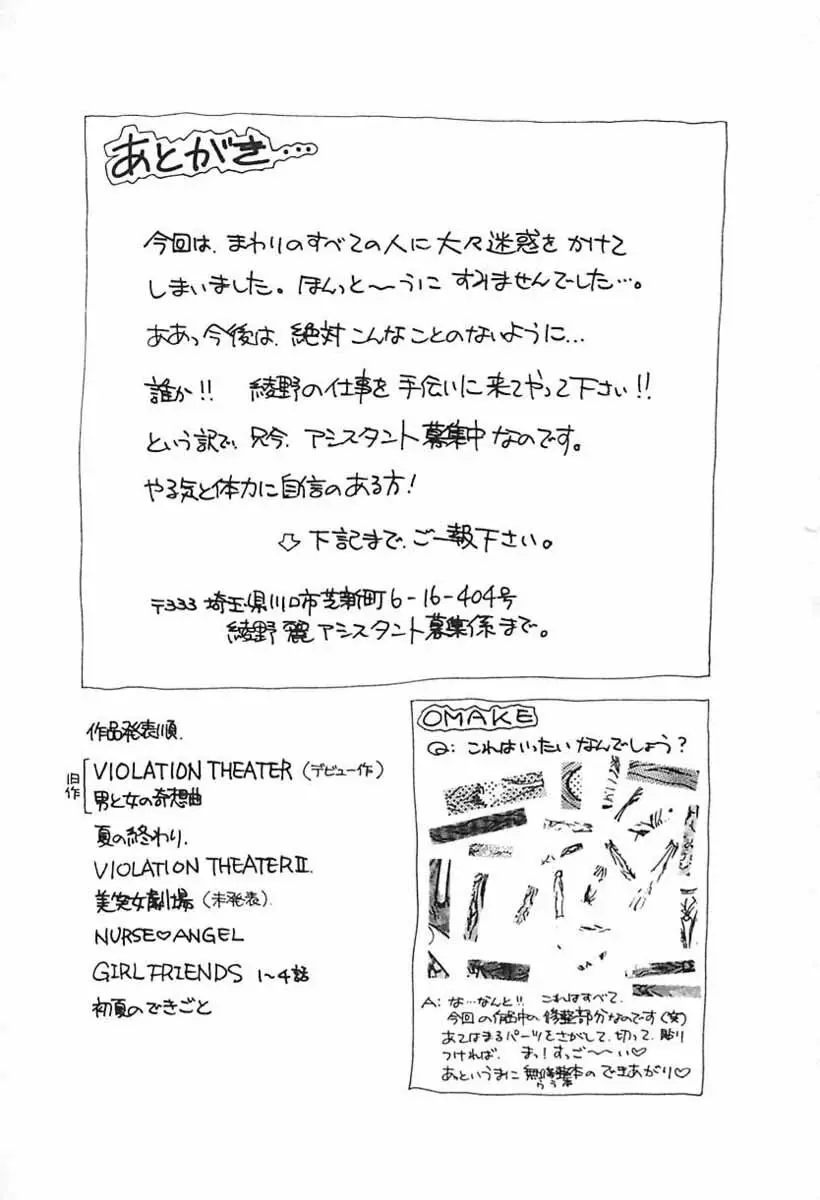 あとがき…
今回は、まわりのすべての人に大々迷惑をかけて
しまいました。ほんっと〜うにすみませんでした…。
ああっ今後は、絶対こんなことのないように…
誰か!! 綾野の仕事を手伝いに来てやって下さい!!
という訳で、只今、アシスタント募集中なのです。
やる気と体力に自信のある方!
⇩下記まで、ご一報下さい。
〒333 埼玉県川口市芝新町6-16-404号
綾野 麗アシスタント募集係まで。
作品発表順.
旧作
VIOLATION THEATER (デビュー作)
男と女の奇想曲
夏の終わり.
VIOLATION THEATER II.
美実女劇場(未発表)
NURSE♡ANGEL
GIRL FRIENDS 1〜4話
初夏のできごと
OMAKE
Q: これはいったいなんでしょう?
A: な…なんと!! これはすべて、
今回の作品中の修整部分なのです(笑)
あてはまるパーツをさがして、切って、貼り
つければ、まっ!すっご〜〜い♡
あっというまに無修整本のできあがり♡